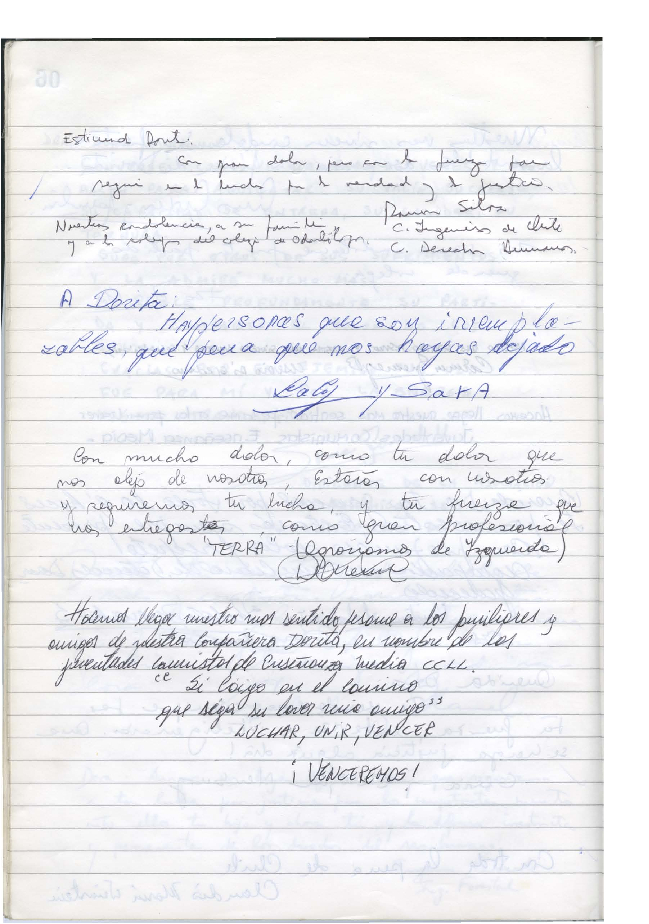 Estimada Dorita:
Con gran dolor, pero con la fuerza para
seguir en la lucha por la verdad y la justicia.
Ramón Silva
Nuestras condolencias, a su familia,
C. Ingenieros de Chile
y a los colegas del colegio de Odontólogos.
C. Derechos Humanos.
A Dorita:
Hay personas que son irremplazo-
zables, que pena que nos hayas dejado
Laly y SarA
Con mucho dolor, como tu dolor que
nos alejó de nosotros, Estarás con nosotros
y seguiremos tu lucha, y tu fuerza que
nos entregaste, como gran profesional
"TERRA" (Agrónomos de Izquierda)
Hacemos llegar nuestro mas sentido pesame a los familiares y
amigos de nuestra compañera Dorita, en nombre de las
juventudes comunistas de Enseñanza media CCLL.
"Si caigo en el camino
que siga su lavor mio amigo"
LUCHAR, UNIR, VENCER
¡VENCEREMOS!